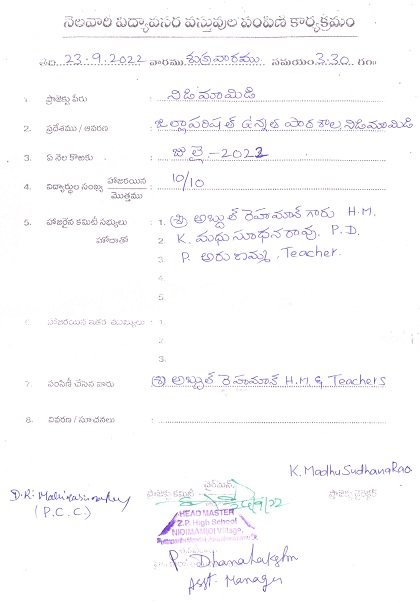 నెలవారి విద్యావసర వస్తువుల పంపిణి కార్యక్రమం
తేది 23.9.2022 వారము శుక్రవారము సమయం 3.30 గం॥
1. ప్రాజెక్టు పేరు : నిడిమామిడి
2. ప్రదేశము / ఆవరణ : జిల్లాపరిషత్ ఉన్నత పాఠశాల నిడిమామిడి
3. ఏ నెల కొఱకు : జులై - 2022
4. విద్యార్థుల సంఖ్య హాజరయిన / మొత్తము : 10/10
5. హాజరైన కమిటీ సభ్యులు : 1. శ్రీ అబ్దుల్ రెహమాన్ గారు H.M.
హోదాతో 2. K. మధుసూధనరావు. P.D.
3. P. అరుణమ్మ, Teacher.
4.
5.
6. హాజరయిన ఇతర : 1.
2.
3.
7. పంపిణీ చేసిన వారు : శ్రీ అబ్దుల్ రెహమాన్ H.M. & Teachers
8. వివరణ / సూచనలు :
K. MadhuSudhanaRao
ప్రాజెక్టు కమిటీ ఛైర్మన్
ప్రాజెక్టు డైరెక్టర్
(P.C.C.)
HEAD MASTER
Z.P. High School
NIDIMAMIDI Village,
P. Dhanalakshm
Asst. Manager